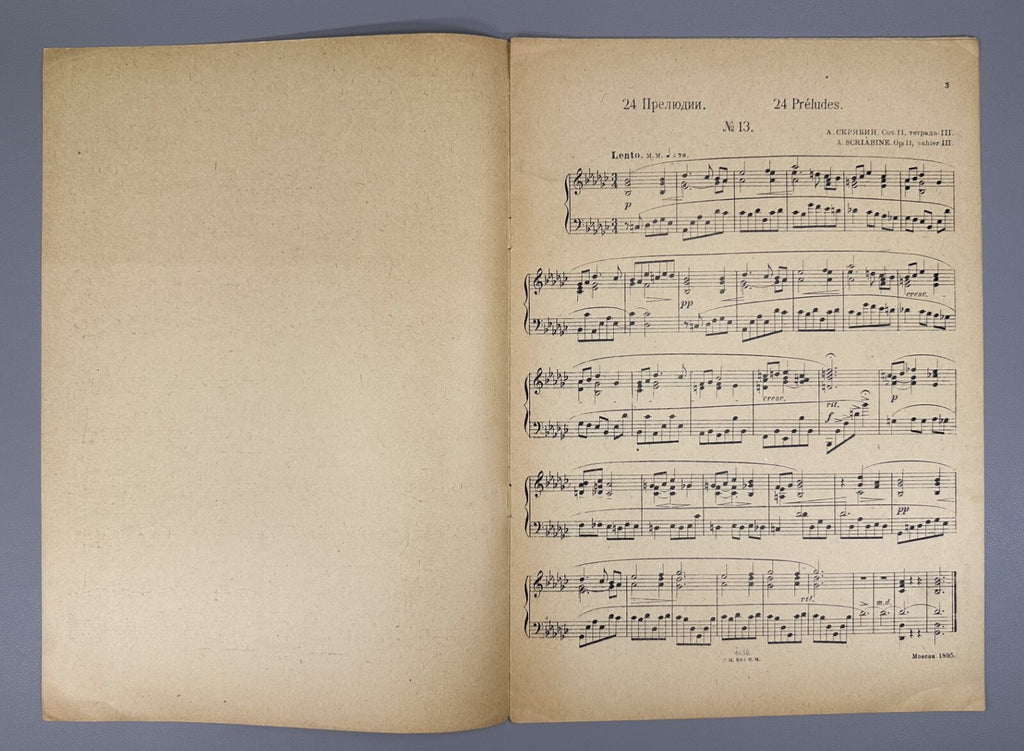 3
24 Прелюдии. 24 Préludes.
№ 13.
А. СКРЯБИН. Соч. 11, тетрадь III.
A. SCRIABINE. Op. 11, cahier III.
Lento. M. M. ♩ = 76.
p
pp cresc.
cresc. rit. f p
pp
rit. m.d.
Moscou 1895.